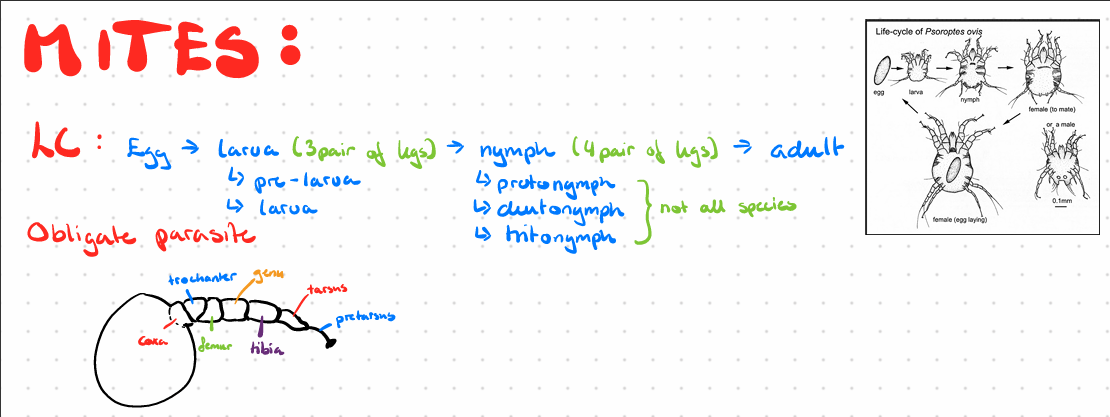 MITES:
LC: Egg → larva (3 pair of legs) → nymph (4 pair of legs) → adult
↳ pre-larva
↳ larva
↳ protonymph
↳ deutonymph
↳ tritonymph
not all species
Obligate parasite
trochanter
genu
tarsus
pretarsus
coxa
femur
tibia
Life-cycle of Psoroptes ovis
egg
larva
nymph
female (to mate)
or a male
0.1mm
female (egg laying)